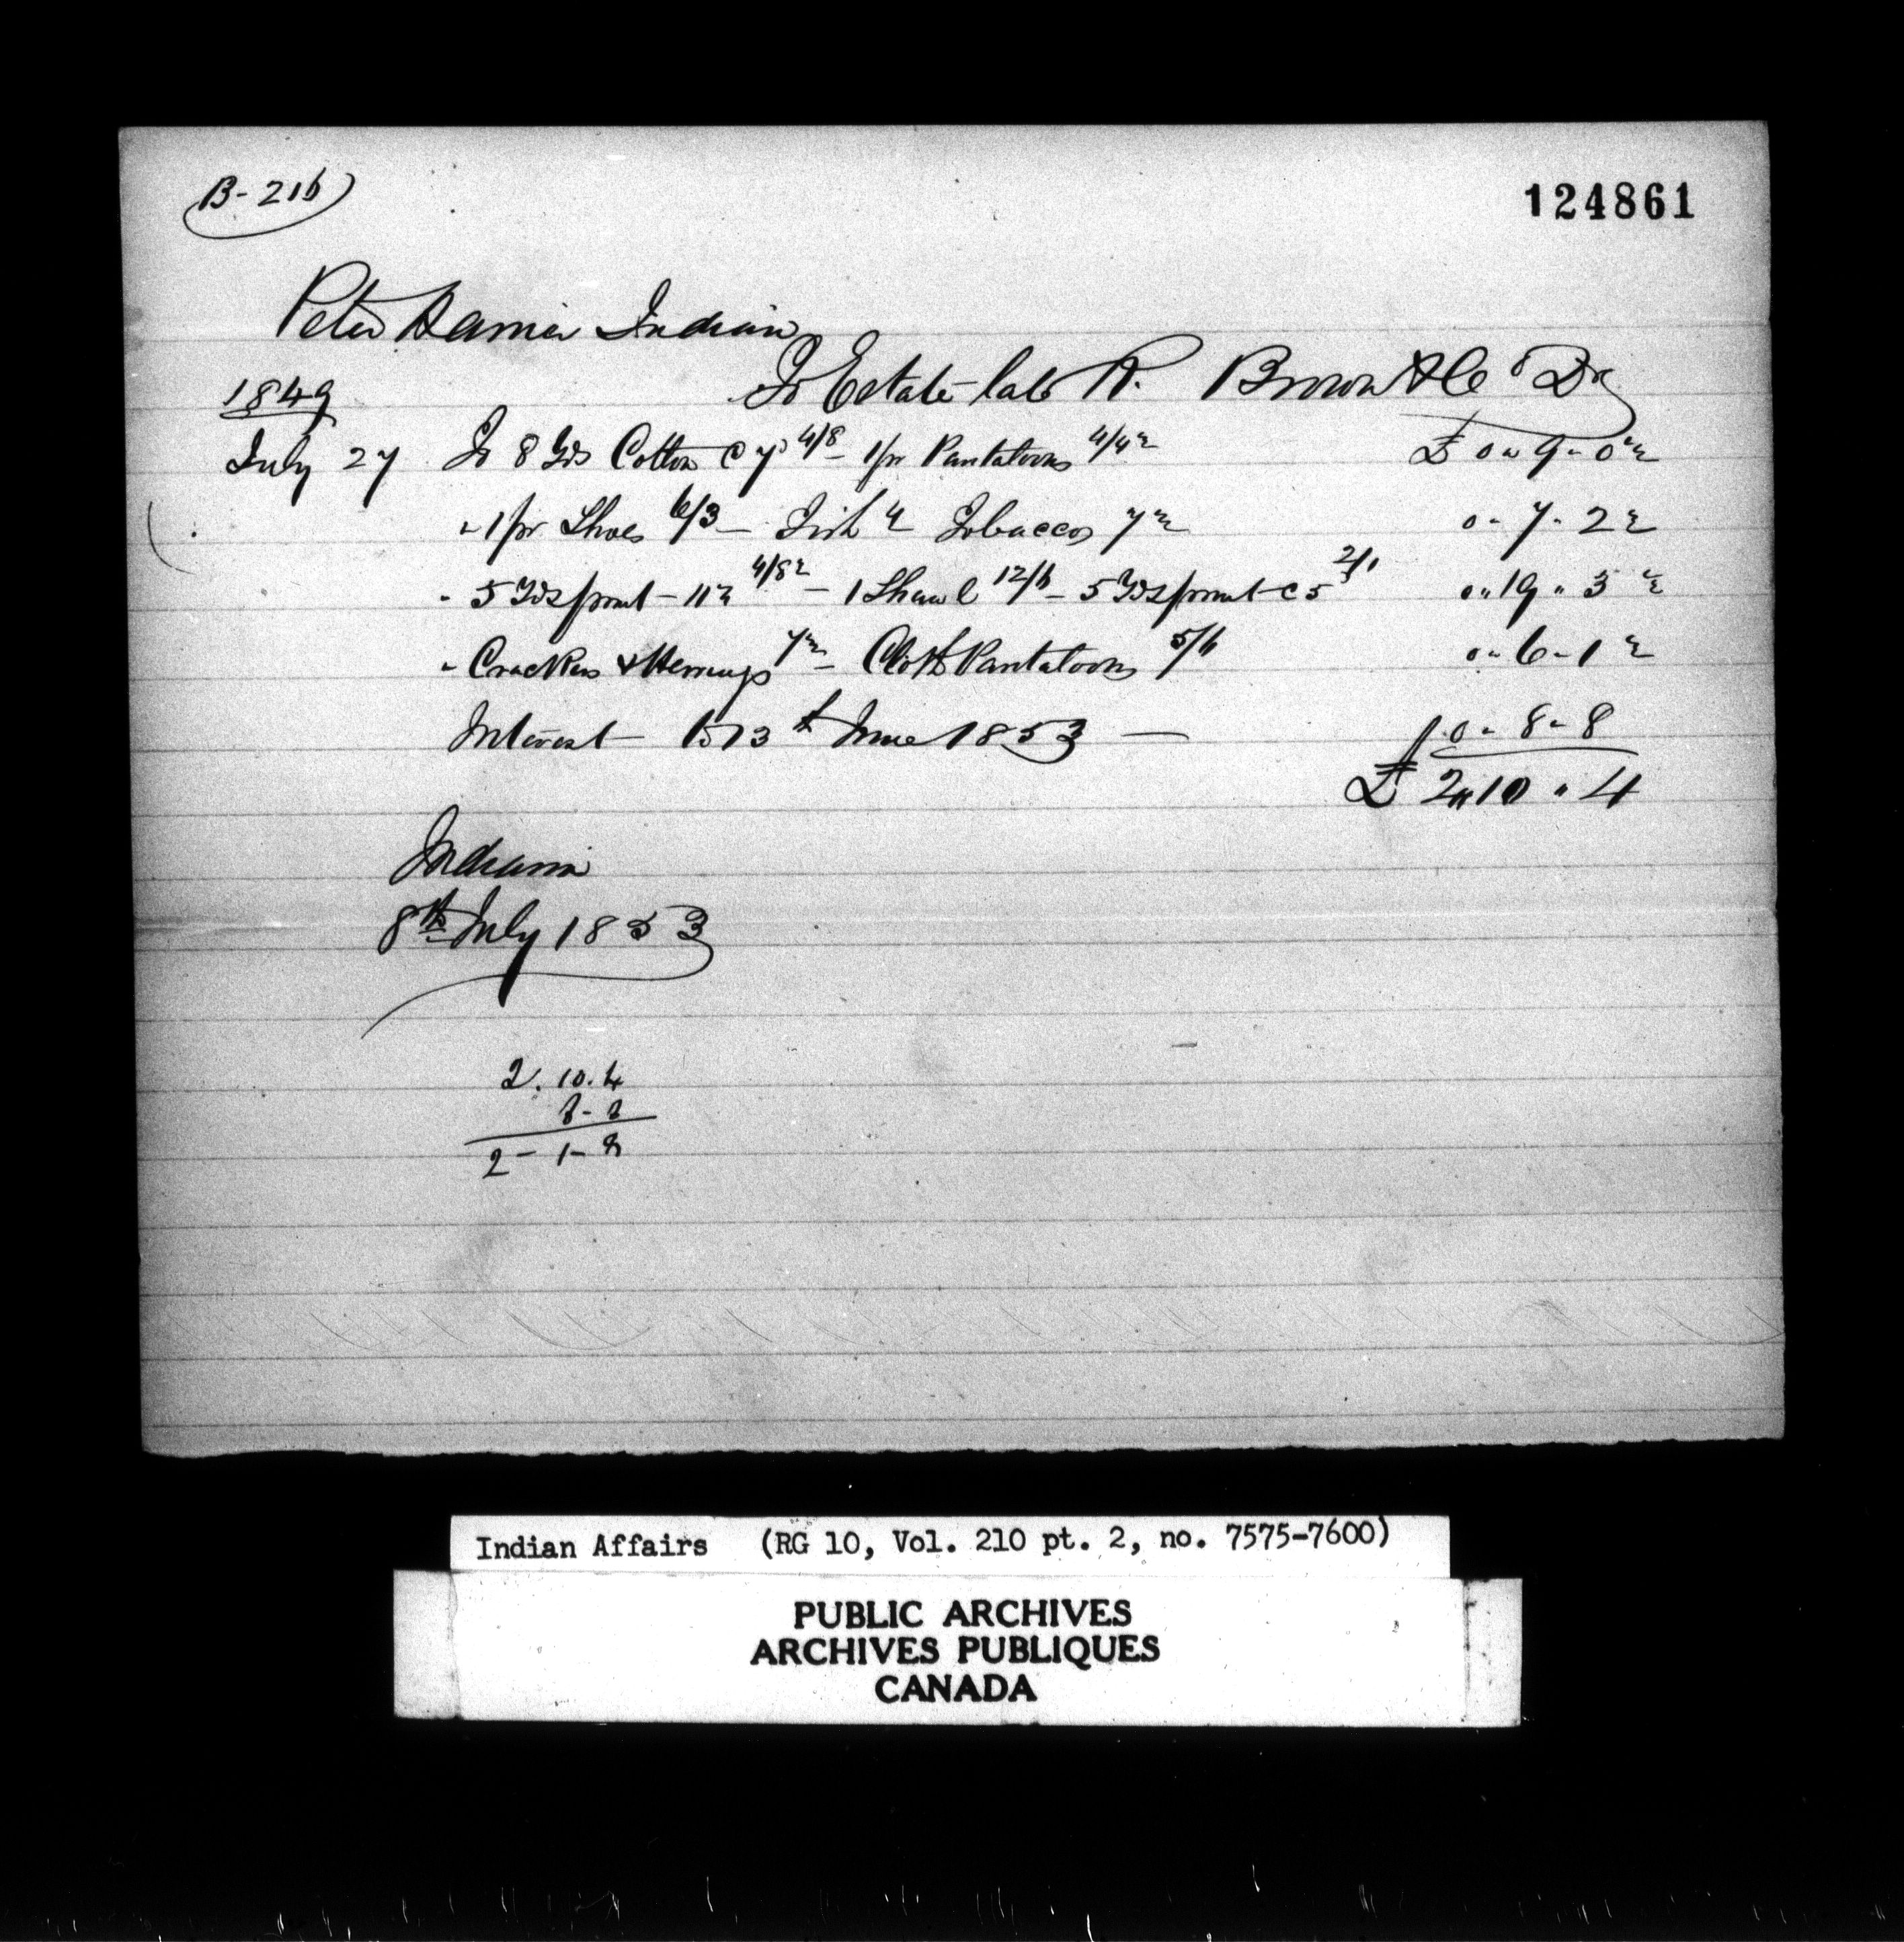 B-216
124861
Peter Harris Indian
To Estate late R. Brown & Co Dr
1849
July 27 To 8 Yds Cotton c 7d 4/8 - 1 pr Pantaloons 4/4½ £ 0 " 9 - 0½
" 1 pr Shoes 6/3 - Fish 4 Tobacco 7½ 0 - 7 - 2½
" 5 Yds print - 11½ 4/8½ - 1 Shawl 12/6 - 5 Yds print c 5 2/1 0 " 19 " 3½
" Crackers & Herrings 7½ - Cloth Pantaloons 5/6 0 - 6 - 1½
Interest to 13th June 1853 — 0 - 8 - 8
£ 2 " 10 " 4
Indiana
8th July 1853
2. 10. 4
8 - 8
2 - 1 - 8
Indian Affairs (RG 10, Vol. 210 pt. 2, no. 7575-7600)
PUBLIC ARCHIVES
ARCHIVES PUBLIQUES
CANADA